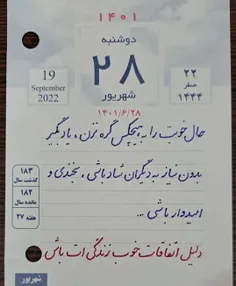 ۱۴۰۱
دوشنبه
۲۸
شهریور
19
September
2022
۲۲
صفر
۱۴۴۴
۱۴۰۱/۶/۲۸
حال خوبت را به هیچکس گره نزن، یاد بگیر
بدون نیاز به دیگران شاد باشی، بخندی و
امیدوار باشی...
دلیل اتفاقات خوب زندگی ات باش
۱۸۳
گذشت سال
۱۸۲
مانده سال
هفته ۲۷
شهریور